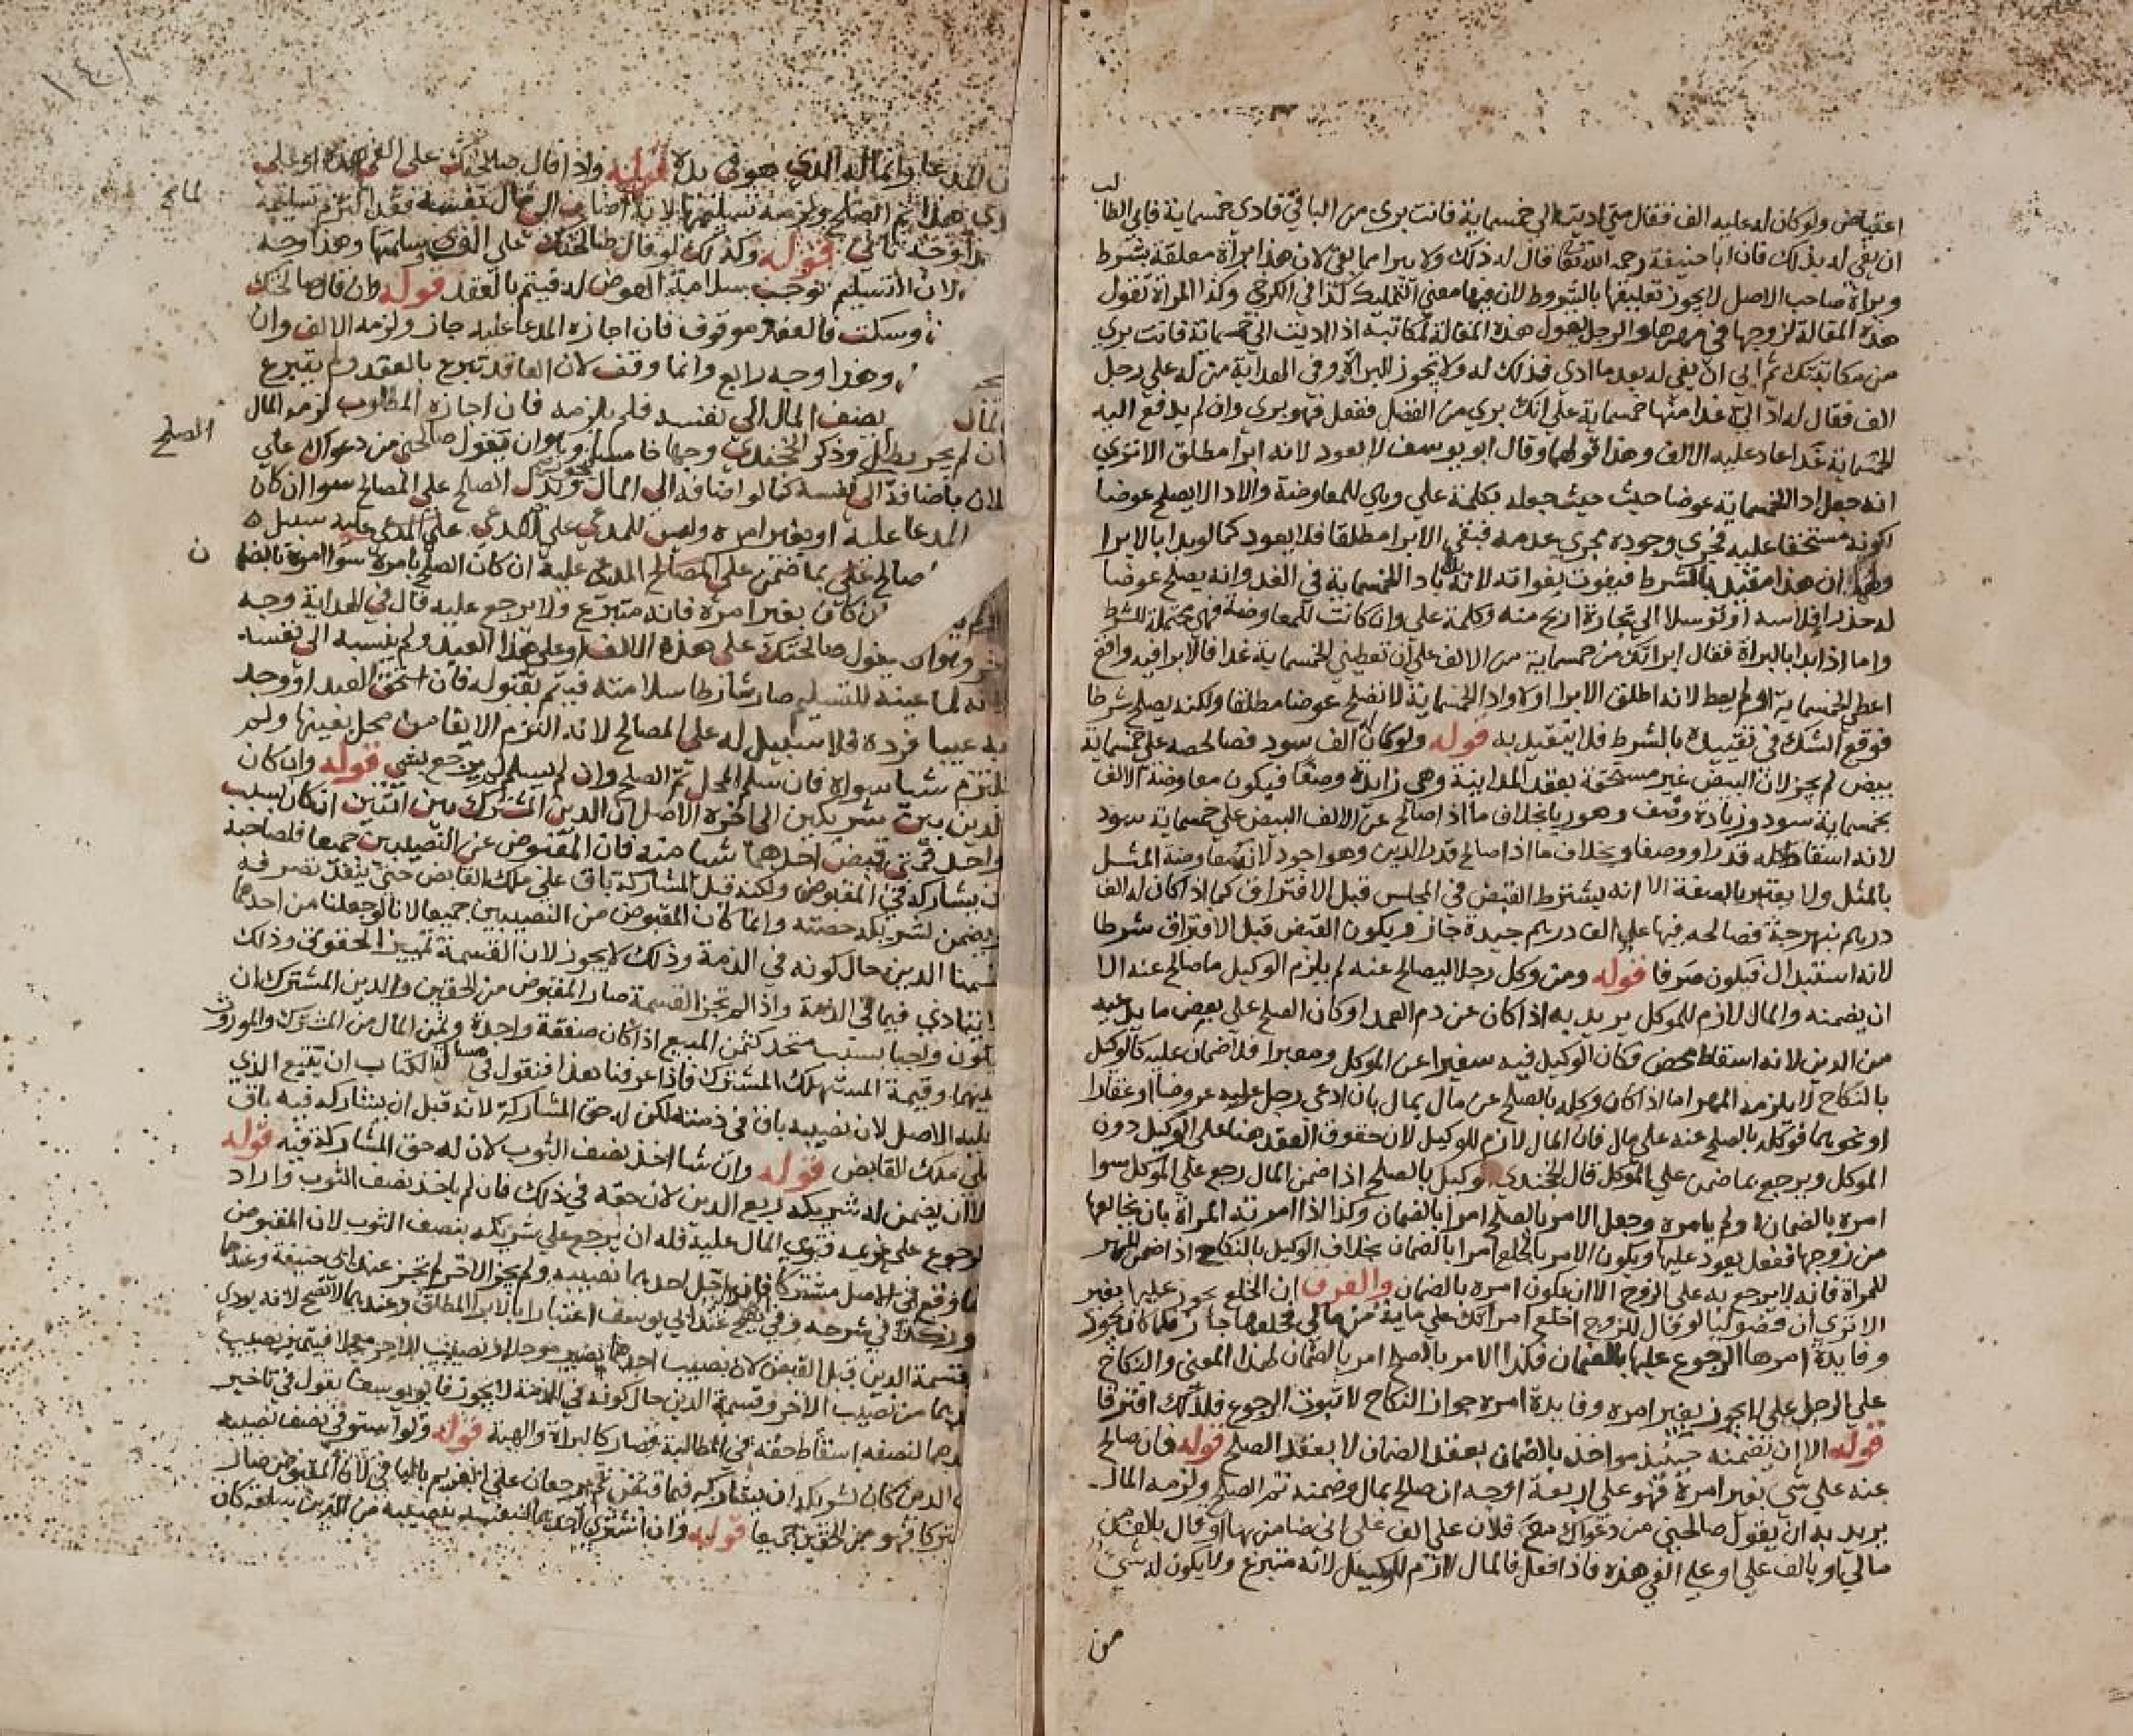 اعتياض ولو كان له عليه الف فقال متى اديت الي خمسماية فانت بري من الباقي فادي خمسماية فابي الطا
لب
ان بقي له بذلك فان ابا حنيفة رحمه الله تعا قال له ذلك ولا يبرا مما بقي لان هذا براة معلقة بشرط
وبراة صاحب الاصل لا يجوز تعليقها بالشروط لان فيها معني التمليك كذا في الكرخي وكذا المراة تقول
هذه المقالة لزوجها في مهرها والرجل يقول هذه المقالة لمكاتبه اذا اديت الي خمسماية فانت بري
من مكاتبتك ثم ابي ان بقي له بعد ما ادي فذلك له ولا تجوز البراة وفي الهداية من له علي رجل
الف فقال له اد الي غدا منها خمسماية علي انك بري من الفضل ففعل فهو بري وان لم يدفع اليه
الخمسماية غدا عاد عليه الالف وهذا قولهما وقال ابو يوسف لا يعود لانه ابرا مطلق الا تري
انه جعل ادا الخمسماية عوضا حيث حيث جعله بكلمة علي وهي للمعاوضة والادا لا يصلح عوضا
لكونه مستحقا عليه فجري وجوده مجري عدمه فبقي الابرا مطلقا فلا يعود كما لو بدا بالابرا
ولهما ان هذا مقيد بالشرط فيفوت بفواته لانه بدا بادا الخمسماية في الغد وانه يصلح عوضا
له حذر افلاسه او توسلا الي تجارة اربح منه وكلمة علي وان كانت للمعاوضة فهي محتملة للشرط
واما اذا بدا بالبراة فقال ابراتك من خمسماية من الالف علي ان تعطيني الخمسماية غدا فالابرا فيه واقع
اعطي الخمسماية او لم يعط لانه اطلق الابرا اولا وادا الخمسماية لا تصلح عوضا مطلقا ولكنه يصلح شرطا
فوقع الشك في تقييده بالشرط فلا يتقيد به قوله ولو كان له الف سود فصالحه علي خمسماية
بيض لم يجز لان البيض غير مستحقة بعقد المداينة وهي زايدة وصفا فيكون معاوضة الالف
بخمسماية سود وزيادة وصف وهو ربا بخلاف ما اذا صالح عن الالف البيض علي خمسماية سود
لانه اسقاط كله قدرا ووصفا وبخلاف ما اذا صالح قدر الدين وهو اجود لانه معاوضة المثل
بالمثل ولا يعتبر بالصفة الا انه يشترط القبض في المجلس قبل الافتراق كما اذا كان له الف
درهم نبهرجة فصالحه فيها علي الف درهم جيدة جاز ويكون القبض قبل الافتراق شرطا
لانه استبدال فيكون صرفا قوله ومن وكل رجلا ليصالح عنه لم يلزم الوكيل ما صالح عنه الا
ان يضمنه والمال لازم للموكل يريد به اذا كان عن دم العمد او كان الصلح علي بعض ما يدعيه
من الدين لانه اسقاط محض فكان الوكيل فيه سفيرا عن الموكل ومعبرا فلا ضمان عليه كالوكيل
بالنكاح لا يلزمه المهر اما اذا كان وكله بالصلح عن مال بمال بان ادعي رجل عليه عروضا او عقارا
او نحوهما فوكله بالصلح عنه علي مال فان المال لازم للوكيل لان حقوق العقد هنا علي الوكيل دون
الموكل ويرجع بما ضمن علي الموكل قال الخجندي الوكيل بالصلح اذا ضمن المال رجع علي الموكل سوا
امره بالضمان او لم يامره وجعل الامر بالصلح امرا بالضمان وكذا اذا امرته المراة بان يخالعها
من زوجها ففعل يعود عليها ويكون الامر بالخلع امرا بالضمان بخلاف الوكيل بالنكاح اذا ضمن المهر
للمراة فانه لا يرجع به علي الزوج الا ان يكون امره بالضمان والفرق ان الخلع يجوز عليها بغير
الا تري ان فضوليا لو قال للزوج اخلع امراتك علي ماية من مالي فخلعها جاز فلما كان يجوز
وفايدة امرها الرجوع عليها بالضمان فكذا الامر بالصلح امر بالضمان لهذا المعني والنكاح
علي الرجل علي لا يجوز بغير امره وفايدة امره جواز النكاح لا ثبوت الرجوع فلذلك افترقا
قوله الا ان يضمنه حينيذ مواخذ بالضمان بعقد الضمان لا بعقد الصلح قوله فان صالح
عنه علي شي بغير امره فهو علي اربعة اوجه ان صالح بمال وضمنه تم الصلح ولزمه المال
يريد به ان يقول صالحني من دعواك مع فلان علي الف علي اني ضامن بها او قال بالف من
مالي او بالف علي او علي الفي هذه فاذا فعل فالمال لازم للوكيل لانه متبرع ولا يكون له شي
من
١٤١
وانما له الذي هو في يده قوله واذا قال صالحتك علي الفي هذه او علي
هذا تم الصلح ولزمه تسليمها لانه اضاف الي مال نفسه فقد التزم تسليمه
وجه ثاني قوله وكذلك لو قال صالحتك علي الف وسلمها وهذا وجه
لان التسليم توجب سلامة العوض له فيتم بالعقد قوله وان قال صالحتك
وسكت فالعقد موقوف فان اجازه المدعا عليه جاز ولزمه الالف وان
وهذا وجه رابع وانما وقف لان العاقد تبرع بالعقد ولم يتبرع
المال يضف المال الي نفسه فلم يلزمه فان اجازه المطلوب لزمه المال
الصلح
ان لم يجز بطل وذكر الخجندي وجها خامسا وهو ان يقول صالحني من دعواك علي
لان باضافة الي نفسه كما لو اضافه الي المال وبدل الصلح علي المصالح سوا ان كان
المدعا عليه او بغير امره وليس للمدعي علي المدعي علي المدعي عليه سبيل
صالح علي بما ضمن علي المصالح المدعي عليه ان كان الصلح بامره سوا امره بالضما
ن
ان كان بغير امره فانه متبرع ولا يرجع عليه قال في الهداية وجه
وهو ان يقول صالحتك علي هذه الالف او علي هذا العبد ولم ينسبه الي نفسه
لانه لما عينه للتسليم صار شارطا سلامته فيتم بقبوله فان استحق العبد او وجد
به عيبا فرده فلا سبيل له علي المصالح لانه التزم الايفا من محل بعينه ولم
يلتزم شيا سواه فان سلم المحل تم الصلح وان لم يسلم لم يرجع بشي قوله وان كان
الدين بين شريكين الي اخره الاصل ان الدين المشترك بين اثنين اذا كان بسبب
واحد فمتي قبض احدهما شيا منه فان المقبوض عن النصيبين جميعا فلصاحبه
ان يشاركه في المقبوض ولكنه قبل المشاركة باق علي ملك القابض حتي ينفذ تصرفه
ويضمن لشريكه حصته وانما كان المقبوض من النصيبين جميعا لانا لو جعلنا من احدهما
قسمنا الدين حال كونه في الذمة وذلك لا يجوز لان القسمة تمييز الحقوق وذلك
لا يتادي فيما في الذمة واذا لم تجز القسمة صار المقبوض من الحقين والدين المشترك ان
يكون واجبا بسبب متحد كثمن المبيع اذا كان صفقة واحدة وثمن المال من المشترك والموروث
بينهما وقيمة المستهلك المشترك فاذا عرفنا هذا فنقول في مسالة الكتاب ان يتبع الذي
عليه الاصل لان نصيبه باق في ذمته لكن له حق المشاركة لانه قبل ان يشاركه فيه باق
علي ملك القابض قوله وان شا اخذ نصف الثوب لان له حق المشاركة فيه قوله
الا ان يضمن له شريكه ربع الدين لان حقه في ذلك فان لم ياخذ نصف الثوب واراد
الرجوع علي غريمه فتوي المال عليه فله ان يرجع علي شريكه بنصف الثوب لان المقبوض
ما وقع في الاصل مشتركا فان اجل احدهما نصيبه ولم يجز الاخر لم تجز عند ابي حنيفة وعندهما
وذكر في شرحه وفي يصح عند ابي يوسف اعتبارا بالابرا المطلق وعندهما لا تصح لانه يودي
قسمة الدين قبل القبض لان نصيب احدهما يصير موجلا ونصيب الاخر معجلا فيتميز نصيب
احدهما من نصيب الاخر وقسمة الدين حال كونه في الذمة لا يجوز فابو يوسف يقول في تاخير
احدهما لنصيبه اسقاط حقه في المطالبة فصار كالبراة والهبة قوله ولو استوفي نصف نصيبه
من الدين كان لشريكه ان يشاركه فيما قبض ثم يرجعان علي الغريم بالباقي لان المقبوض صار
مشتركا فهو من الحقين جميعا قوله وان اشتري احدهما لنفسه بنصيبه من الدين سلعة كان